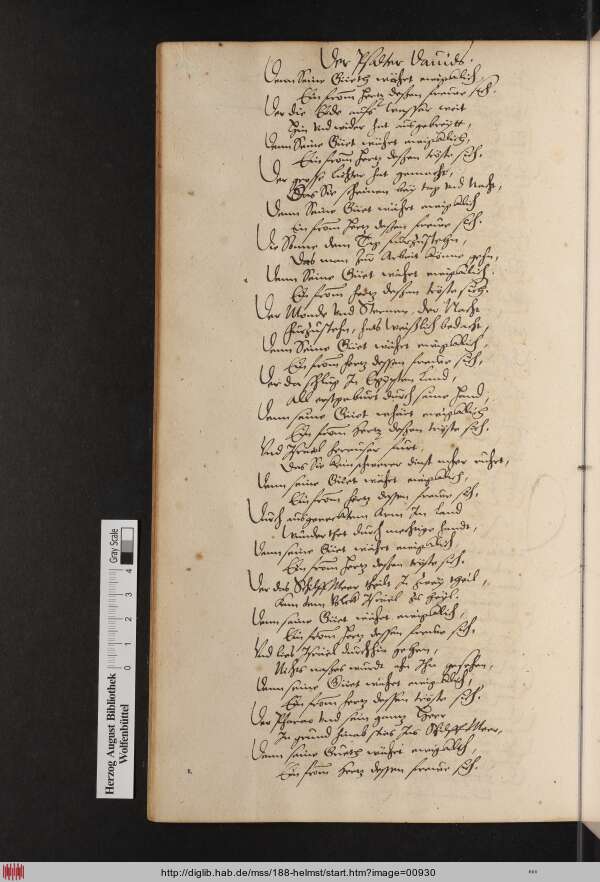 Der Psalter Dauids.
Denn Seine Guete wehret ewigklich,
Ein from hertz dessen frewe sich.
Der die Erde auffs wasser weit
Hin vnd wider hat ausgebreytt,
Denn Seine Güet wehret ewigklich,
Ein from hertz dessen tröste sich.
Der grosse liechter hat gemacht,
Das Sie scheinen bey tag vnd Nacht,
Denn Seine Güet wehret ewigklich
Ein from hertz dessen frewe sich.
Die Sonne dem Tag fürzustehn,
Das man zur Arbeit könne gehn,
Denn Seine Güet wehret ewigklich.
Ein from hertz dessen tröste sich.
Der Monde vnd Sternen der Nacht
Fürzustehn, hats weißlich bedacht,
Denn Seine Güet wehret ewigklich,
Ein from hertz dessen frewe sich,
Der da schlug In Egypten Land,
All erstgeburt durch seine Hand,
Denn seine Güet wehret ewigklich
Ein from hertz dessen tröste sich.
Vnd Israel herausser furt,
Das Sie kein schwerer dinst mher rührt,
Denn seine Güet wehret ewigklich,
Ein from hertz dessen frewe sich,
Durch ausgereckten Arm Im Land
Wunder thet durch mechtige handt,
Denn seine Güet wehret ewigklich
Ein from hertz dessen tröste sich.
Der das Schilff Meer theilt In zwey theil,
Kam dem Volck Israel zu heyl.
Denn seine Güet wehret ewigklich,
Ein from hertz dessen frewe sich,
Vnd lies Israel durchhin gehen,
Nichts nasses wurdt an Ihn gesehen,
Denn seine Güet wehret ewigklich,
Ein from hertz dessen tröste sich.
Der Pharao vnd sein gantz Heer
In grund hinab sties Ins Schilff Meer,
Denn seine Güete wehret ewigklich,
Ein from hertz dessen frewe sich.
Herzog August Bibliothek
Wolfenbüttel
0 1 2 3 4
Gray Scale
http://diglib.hab.de/mss/188-helmst/start.htm?image=00930